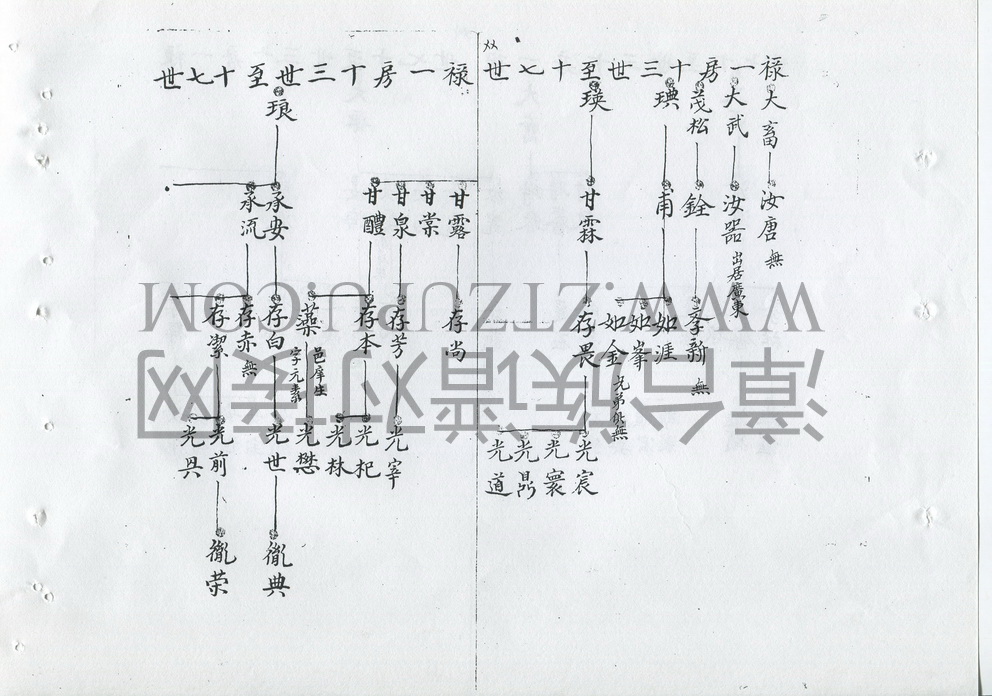 禄一房十三世至十七世
大畜
汝唐
無
大武
汝器
出居廣東
茂松
銓
孝新
無
琠
甫
如涯
如峯
如金
兄弟俱無
瑛
甘霖
存畏
光宸
光寰
光昺
光道
禄一房十三世至十七世
甘露
存尚
甘棠
甘泉
存芳
光宰
甘醴
存本
光杞
光林
藻
邑庠生
字元素
光懋
琅
承安
存白
光世
胤典
承流
存赤
無
存潔
光前
胤荣
光昃
WWW.ZTZUPU.COM
漳台族谱对接网